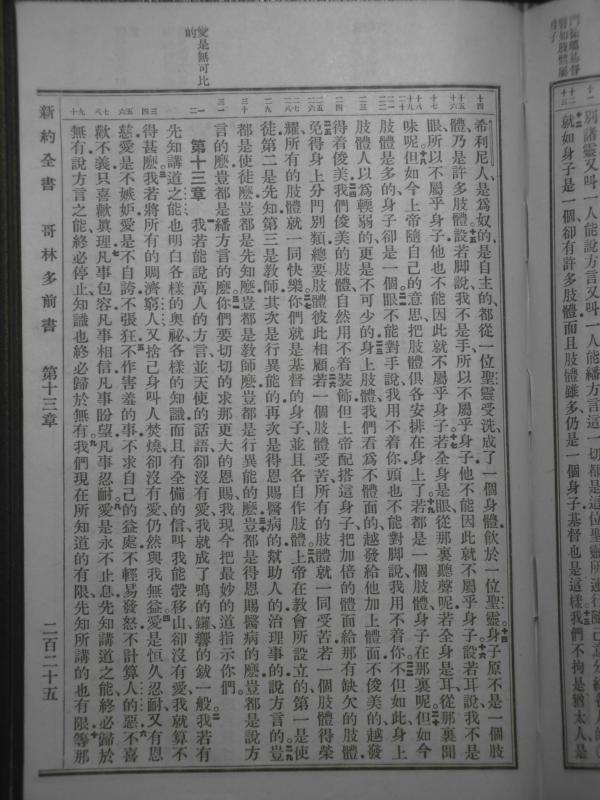 門徒屬基督
譬如肢體屬
身子
別諸靈又叫一人能說方言又叫一人能繙方言這一切都是這位聖靈所運行隨己意分給各人的
就如身子是一個卻有許多肢體而且肢體雖多仍是一個身子基督也是這樣我們不拘是猶太人是
希利尼人是爲奴的是自主的都從一位聖靈受洗成了一個身體飲於一位聖靈身子原不是一個肢
體乃是許多肢體設若脚說我不是手所以不屬乎身子他不能因此就不屬乎身子設若耳說我不是
眼所以不屬乎身子他也不能因此就不屬乎身子若全身是眼從那裏聽聲呢若全身是耳從那裏聞
味呢但如今上帝隨自己的意思把肢體俱各安排在身上了若都是一個肢體身子在那裏呢但如今
肢體是多的身子卻是一個眼不能對手說我用不着你頭也不能對脚說我用不着你不但如此身上
肢體人以爲輭弱的更是不可少的身上肢體我們看爲不體面的越發給他加上體面不俊美的越發
得着俊美我們俊美的肢體自然用不着裝飾但上帝配搭這身子把加倍的體面給那有缺欠的肢體
免得身上分門別類總要肢體彼此相顧若一個肢體受苦所有的肢體就一同受苦若一個肢體得榮
耀所有的肢體就一同快樂你們就是基督的身子並且各自作肢體上帝在教會所設立的第一是使
徒第二是先知第三是教師其次是行異能的再次是得恩賜醫病的幫助人的治理事的說方言的豈
都是使徒麽豈都是先知麽豈都是教師麽豈都是行異能的麽豈都是得恩賜醫病的麽豈都是說方
言的麽豈都是繙方言的麽你們要切切的求那更大的恩賜我現今把最妙的道指示你們
愛是無可比
的
第十三章 我若能說萬人的方言並天使的話語卻沒有愛我就成了鳴的鑼響的鈸一般我若有
先知講道之能也明白各樣的奧祕各樣的知識而且有全備的信叫我能彀移山卻沒有愛我就算不
得甚麽我若將所有的賙濟窮人又捨己身叫人焚燒卻沒有愛仍然與我無益愛是恒久忍耐又有恩
慈愛是不嫉妒愛是不自誇不張狂不作害羞的事不求自己的益處不輕易發怒不計算人的惡不喜
歡不義只喜歡眞理凡事包容凡事相信凡事盼望凡事忍耐愛是永不止息先知講道之能終必歸於
無有說方言之能終必停止知識也終必歸於無有我們現在所知道的有限先知所講的也有限等那
新約全書 哥林多前書 第十三章 二百二十五